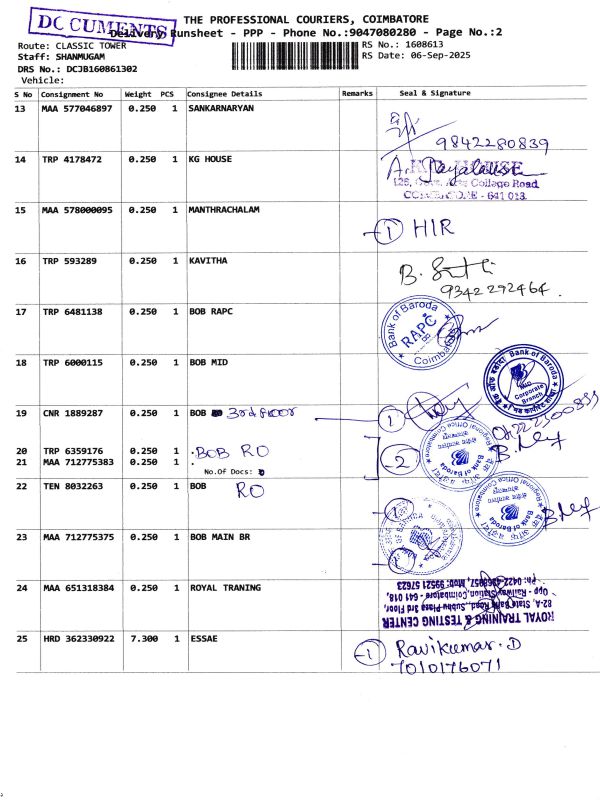 DOCUMENTS
THE PROFESSIONAL COURIERS, COIMBATORE
Delivery Runsheet - PPP - Phone No.:9047080280 - Page No.:2
Route: CLASSIC TOWER
Staff: SHANMUGAM
DRS No.: DCJB160861302
Vehicle:
RS No.: 1608613
RS Date: 06-Sep-2025
S No Consignment No Weight PCS Consignee Details Remarks Seal & Signature
13 MAA 577046897 0.250 1 SANKARNARYAN
9842280839
14 TRP 4178472 0.250 1 KG HOUSE
KG HOUSE
College Road
COIMBATORE - 641 018.
15 MAA 578000095 0.250 1 MANTHRACHALAM
1 HIR
16 TRP 593289 0.250 1 KAVITHA
B.
9342292464.
17 TRP 6481138 0.250 1 BOB RAPC
Bank of Baroda
RAPC
Coimbatore
18 TRP 6000115 0.250 1 BOB MID
Bank of Baroda
Corporate
Branch
19 CNR 1889287 0.250 1 BOB 3rd floor
1
20 TRP 6359176 0.250 1 BOB RO
21 MAA 712775383 0.250 1
No.Of Docs:
2
Bank of Baroda
Regional Office Coimbatore
22 TEN 8032263 0.250 1 BOB RO
1
Bank of Baroda
Regional Office Coimbatore
23 MAA 712775375 0.250 1 BOB MAIN BR
1
24 MAA 651318384 0.250 1 ROYAL TRANING
ROYAL TRAINING & TESTING CENTER
82-A, State Bank Road, Subbu Plaza 3rd Floor,
Opp - Railway Station, Coimbatore - 641 018,
25 HRD 362330922 7.300 1 ESSAE
1 Ravikumar.D
7010176071